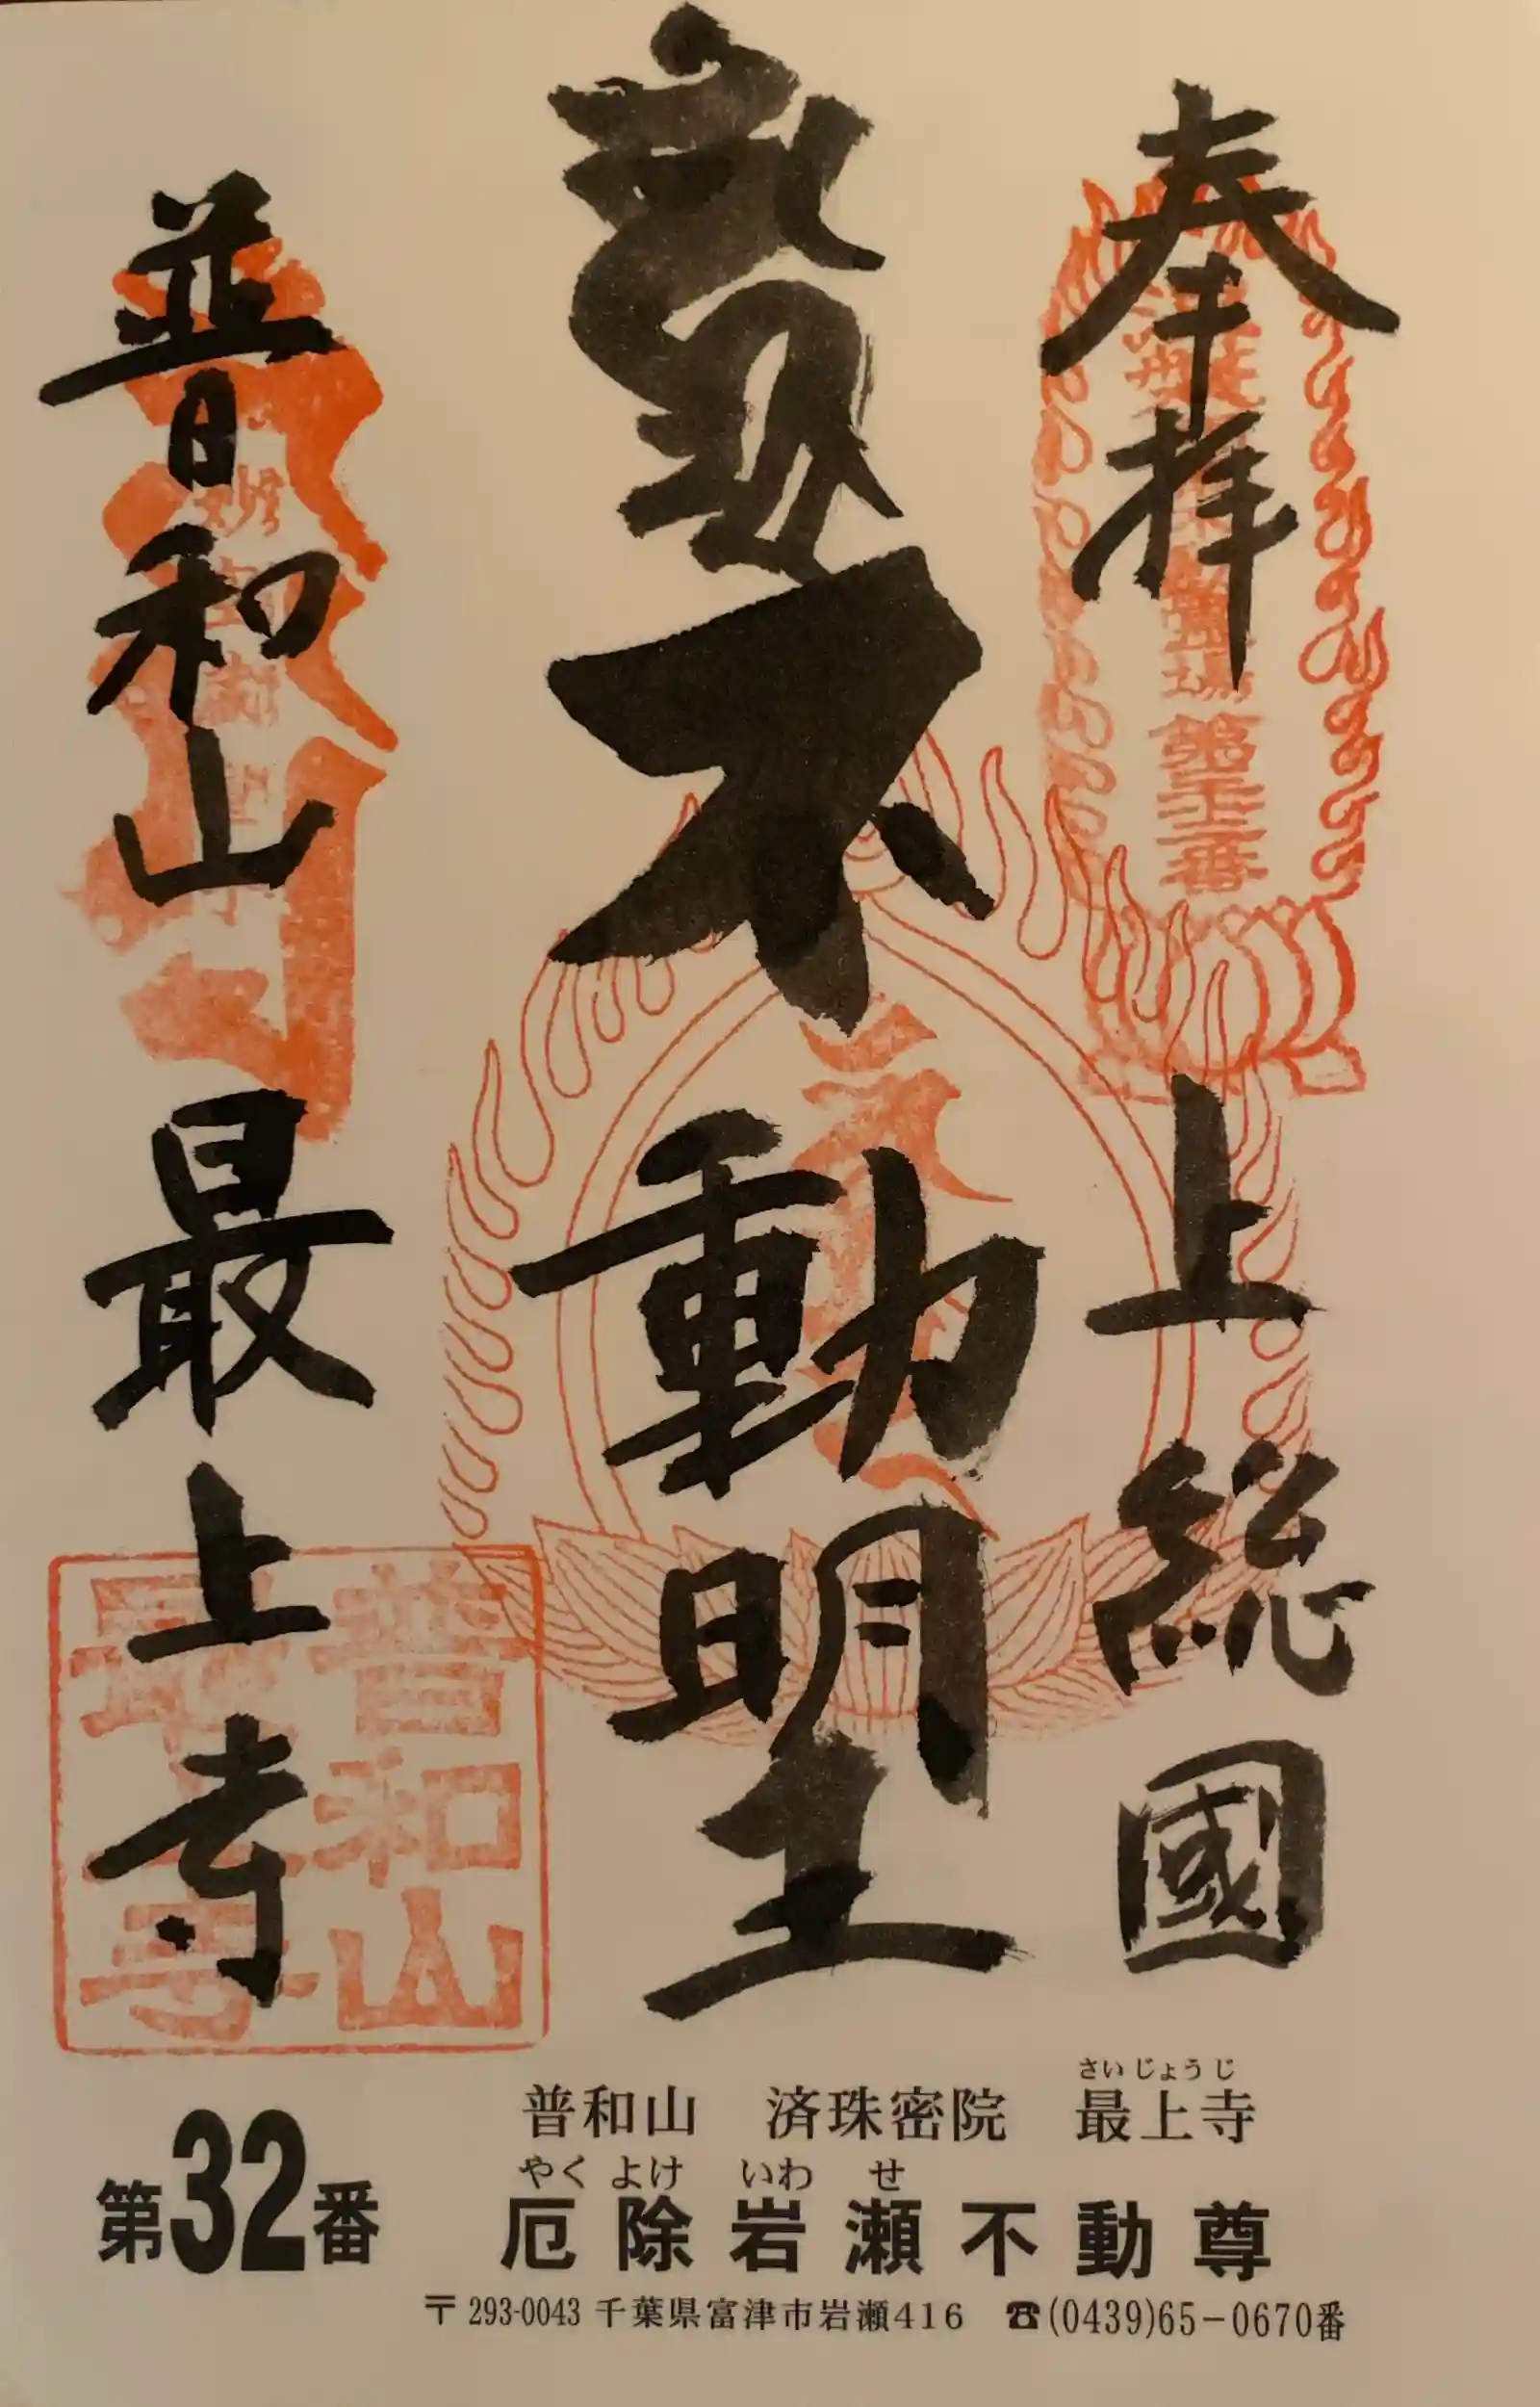 奉拝 上総國
第三十二番
不動明王
普和山 最上寺
普和山
最上寺
さいじょうじ
普和山 済珠密院 最上寺
やく よけ いわ せ
厄除岩瀬不動尊
第32番
〒293-0043 千葉県富津市岩瀬416 ☎(0439)65－0670番